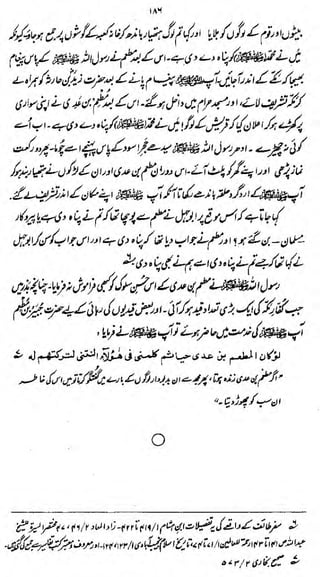 ۱۸۶
بیٹوں اور قوم کے لوگوں کو بلایا اور کہا تم لوگ ہتھیار باندھ کر خانہ کعبہ کے گوشوں پر جمع ہو جاؤ کیونکہ
میں نے محمد ﷺ کو پناہ دے دی ہے۔ اس کے بعد مطعم نے رسول اللہ ﷺ کے پاس پیغام
بھیجا کہ مکے کے اندر آ جائیں۔ آپ ﷺ پیغام پانے کے بعد حضرت زید بن حارثہ کو ہمراہ لے
کر مکہ تشریف لائے، اور مسجد حرام میں داخل ہو گئے۔ اس کے بعد مطعم بن عدی نے اپنی سواری
پر کھڑے ہو کر اعلان کیا کہ قریش کے لوگو! میں نے محمد ﷺ کو پناہ دے دی ہے۔ اب اُسے
کوئی نہ چھیڑے۔ ادھر رسول اللہ ﷺ سیدھے حجر اسود کے پاس پہنچے، اُسے چوما، پھر دو رکعت
نماز پڑھی اور اپنے گھر کو پلٹ آئے۔ اس دوران مطعم بن عدی اور ان کے لڑکوں نے ہتھیار بند ہو کر
آپ ﷺ کے ارد گرد حلقہ باندھے رکھا تا آنکہ آپ ﷺ اپنے مکان کے اندر تشریف لے گئے۔
کہا جاتا ہے کہ اس موقع پر ابوجہل نے مطعم سے پوچھا تھا کہ تم نے پناہ دی ہے یا پیروکار
مسلمان۔ بن گئے ہو؟ اور مطعم نے جواب دیا تھا کہ پناہ دی ہے اور اس جواب کو سن کر ابوجہل
نے کہا تھا کہ جسے تم نے پناہ دی اسے ہم نے بھی پناہ دی۔
رسول اللہ ﷺ نے مطعم بن عدی کے اس حسن سلوک کو کبھی فراموش نہ فرمایا۔ چنانچہ بدر میں
جب کفار مکہ کی ایک بڑی تعداد قید ہو کر آئی۔ اور بعض قیدیوں کی رہائی کے لیے حضرت جبیر بن مطعم
آپ ﷺ کی خدمت میں حاضر ہوئے تو آپ ﷺ نے فرمایا:
لو كان المطعم بن عدى حيا ثم كلمنى فى هؤلاء النتنى لتركتهم له
"اگر مطعم بن عدی زندہ ہوتا، پھر مجھ سے ان بدبودار لوگوں کے بارے میں گفتگو کرتا تو میں اس کی خاطر
ان سب کو چھوڑ دیتا۔"
سفر طائف کے واقعے کی یہ تفصیلات ابن ہشام ۱/۴۱۹ تا ۴۲۲۔ زاد المعاد ۲/۴۶، ۴۷ مختصر السیرۃ للشیخ
عبداللہ ص ۱۴۱ تا ۱۴۳، رحمۃ للعالمین ۱/۷۱ تا ۷۴
صحیح بخاری ۲/۵۷۳